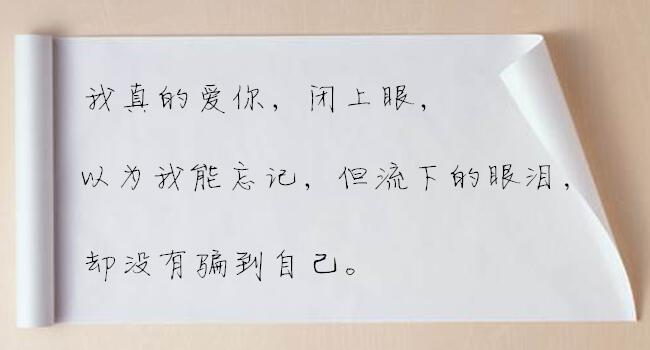 我真的爱你，闭上眼，
以为我能忘记，但流下的眼泪，
却没有骗到自己。